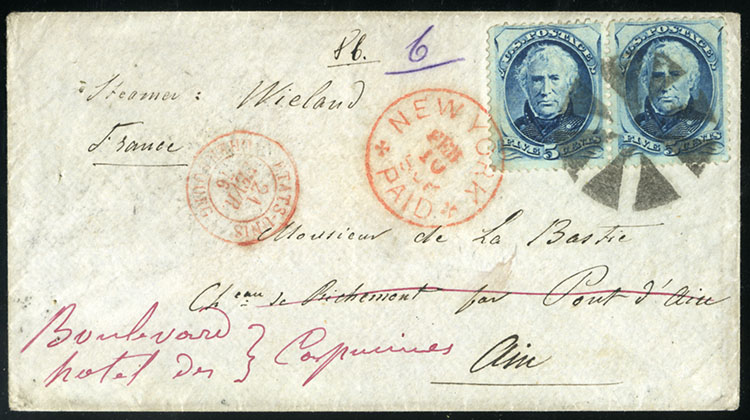 8b. 6
U.S. POSTAGE
U.S. POSTAGE
FIVE 5 CENTS
FIVE 5 CENTS
Steamer: Wieland
France
NEW YORK
FEB
10
PAID
ETATS-UNIS
21
Monsieur de La Bastie
Ch.eau de Richemont par Pont d'Ain
Ain
Boulevard
hotel des } Capucines